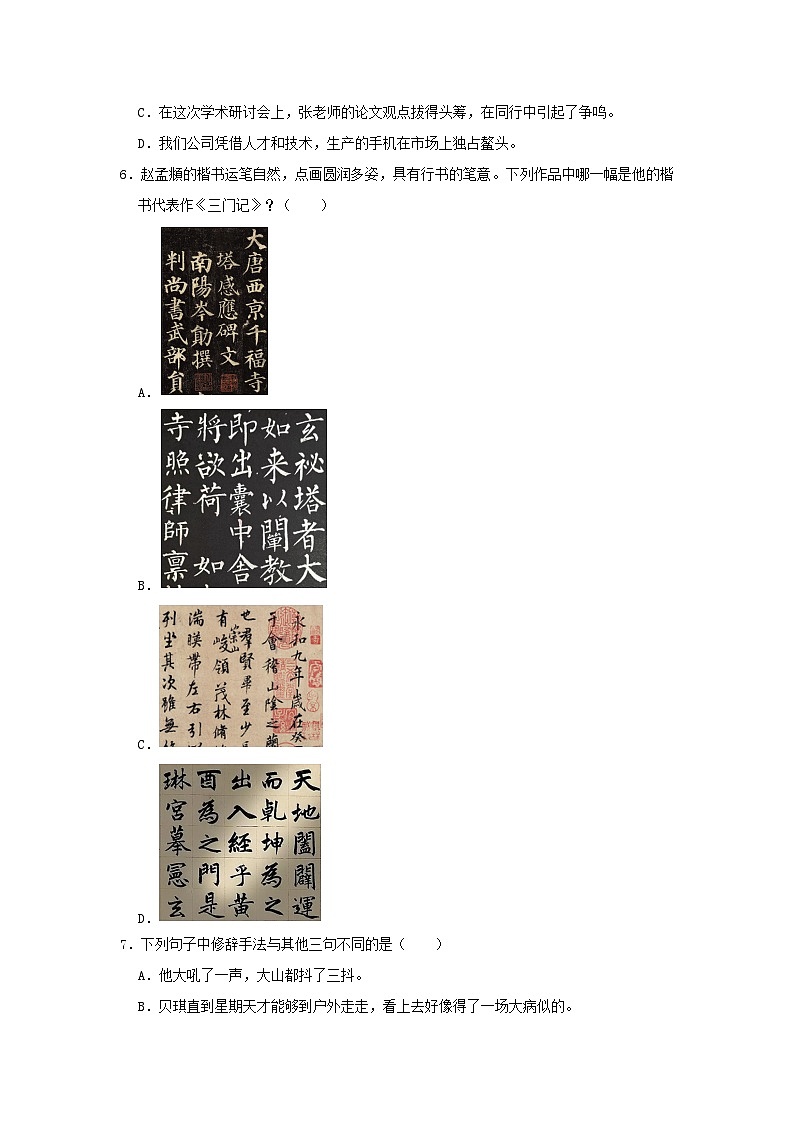 C．在这次学术研讨会上，张老师的论文观点拔得头筹，在同行中引起了争鸣。
D．我们公司凭借人才和技术，生产的手机在市场上独占鳌头。
6．赵孟頫的楷书运笔自然，点画圆润多姿，具有行书的笔意。下列作品中哪一幅是他的楷
书代表作《三门记》？（　　）
A．
大唐西京千福寺
塔感應碑文
南陽岑勛撰
判尚書武部員
B．
玄祕塔者大
如来以闡教
即出囊中舍
將欲荷　如
寺照律師禀
C．
永和九年歲在癸
于會稽山陰之蘭
也羣賢畢至少長
有崇山峻領茂林脩
湍暎帶左右引以
列坐其次雖無
D．
天地闔闢運
而乹坤為之
出入経乎黄
酉為之門是
琳宮摹憲玄
7．下列句子中修辞手法与其他三句不同的是（　　）
A．他大吼了一声，大山都抖了三抖。
B．贝琪直到星期天才能够到户外走走，看上去好像得了一场大病似的。